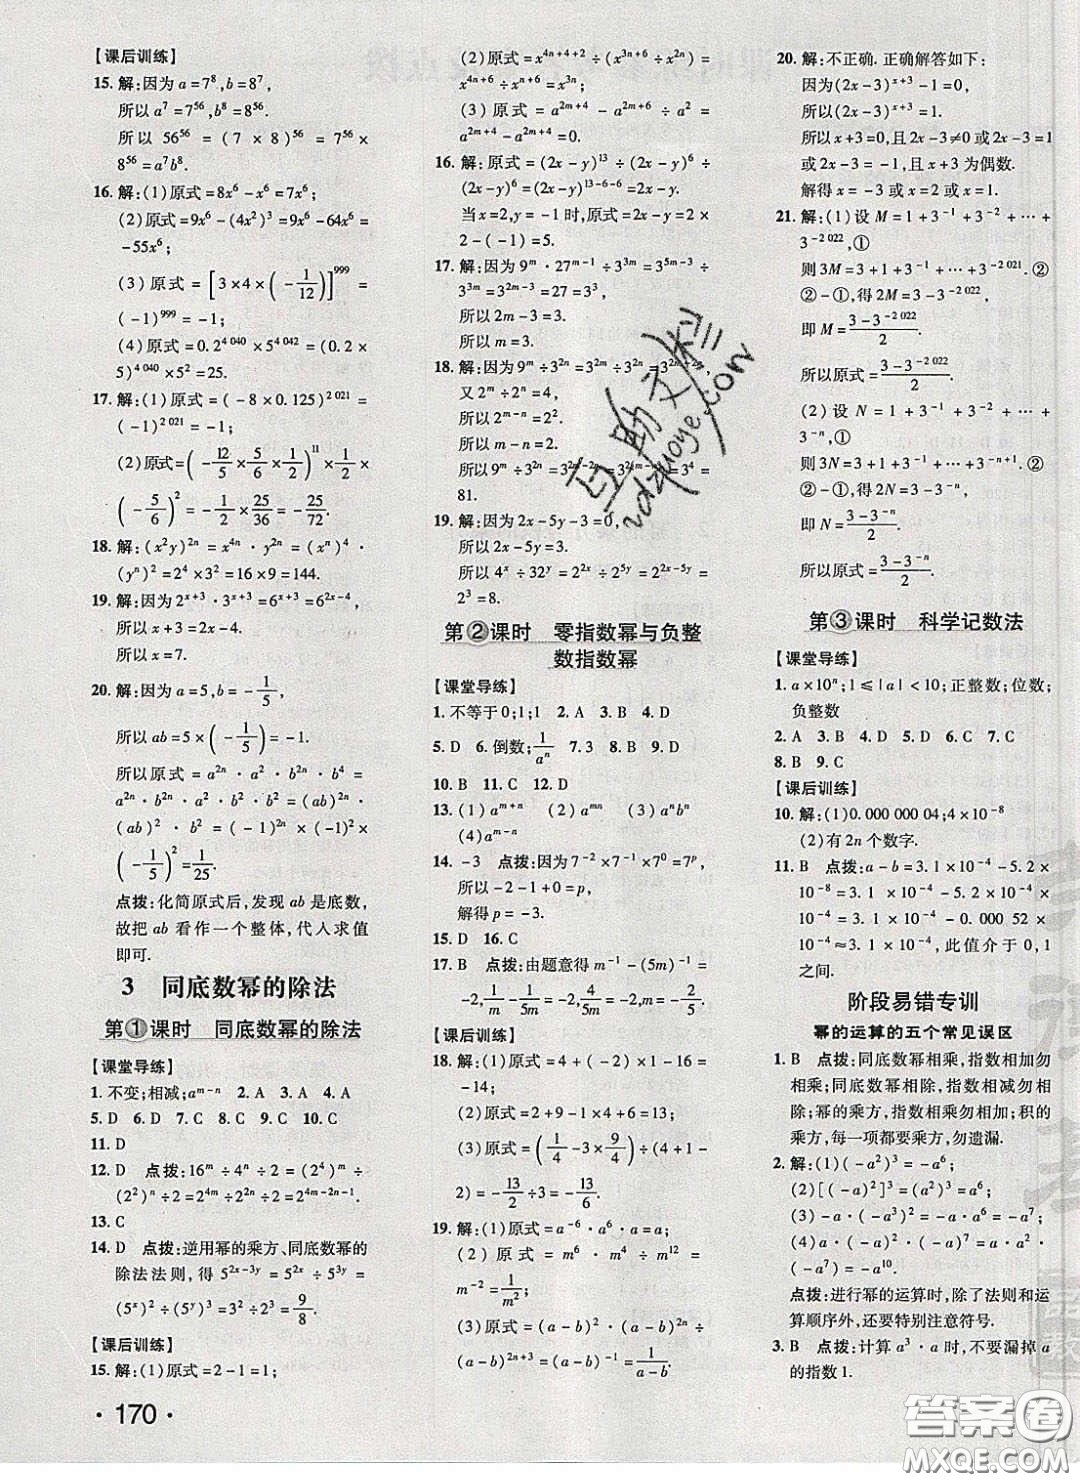 【课后训练】
15. 解:因为 a=7⁸,b=8⁷,
所以 a⁷=7⁵⁶,b⁸=8⁵⁶.
所以 56⁵⁶ = (7 × 8)⁵⁶ = 7⁵⁶ ×
8⁵⁶=a⁷b⁸.
16. 解:(1)原式=8x⁶-x⁶=7x⁶;
(2)原式=9x⁶-(4x²)³=9x⁶-64x⁶=
-55x⁶;
(3)原式 = [3×4×(-1/12)]⁹⁹⁹ =
(-1)⁹⁹⁹=-1;
(4)原式=0.2^(4 040)×5^(4 042)=(0.2×
5)^(4 040)×5²=25.
17. 解:(1)原式 = (-8×0.125)^(2 021) =
(-1)^(2 021)=-1.
(2)原式=(-12/5×5/6×1/2)¹¹×1/2×
(-5/6)²=(-1)×1/2×25/36=-25/72.
18. 解:(x²y)²ⁿ=x⁴ⁿ·y²ⁿ=(xⁿ)⁴·
(yⁿ)²=2⁴×3²=16×9=144.
19. 解:因为2^(x+3)·3^(x+3)=6^(x+3)=6^(2x-4),
所以 x+3=2x-4.
所以 x=7.
20. 解:因为 a=5,b=-1/5,
所以 ab=5×(-1/5)=-1.
所以原式=a²ⁿ·a²·b²ⁿ·b²=
a²ⁿ·b²ⁿ·a²·b²=(ab)²ⁿ·
(ab)²·a²=(-1)²ⁿ×(-1)²×
(-1/5)²=1×1×1/25=1/25.
点拨:化简原式后,发现 ab 是底数,
故把 ab 看作一个整体,代入求值
即可.
3 同底数幂的除法
第①课时 同底数幂的除法
【课堂导练】
1. 不变;相减;a^(m-n) 2. A 3. A 4. A
5. D 6. D 7. D 8. C 9. C 10. C
11. D
12. D 点拨:16^m÷4ⁿ÷2=(2⁴)^m÷
(2²)ⁿ÷2=2^(4m)÷2^(2n)÷2=2^(4m-2n-1).
13. C
14. D 点拨:逆用幂的乘方、同底数幂的
除法法则,得 5^(2x-3y)=5^(2x)÷5^(3y)=
(5^x)²÷(5^y)³=3²÷2³=9/8.
【课后训练】
15. 解:(1)原式=2-1=1;
· 170 ·
(2)原式 = x^(4n+4+2) ÷ (x^(3n+6)÷x⁰) =
x^(4n+6)÷x^(3n+6)=xⁿ;
(3)原式 = a^(2m+4) - a^(2m+6) ÷ a² =
a^(2m+4)-a^(2m+4)=0.
16. 解:原式=(2x-y)¹³÷(2x-y)⁶÷
(2x-y)⁶=(2x-y)^(13-6-6)=2x-y.
当x=2,y=-1时,原式=2x-y=2×
2-(-1)=5.
17. 解:因为 9^m·27^(m-1)÷3^(3m)=3^(5m-3)÷
3^(3m)=3^(2m-3)=27=3³,
所以 2m-3=3.
所以 m=3.
18. 解:因为9^m÷3^(2n)=3^(2m)÷3^(2n)=3^(2m-2n),
又 2^m÷2ⁿ=4,
所以 2^(m-n)=2².
所以 m-n=2.
所以9^m÷3^(2n)=3^(2m-2n)=3^(2(m-n))=3⁴=
81.
19. 解:因为 2x-5y-3=0,
所以 2x-5y=3.
所以 4^x÷32^y=2^(2x)÷2^(5y)=2^(2x-5y)=
2³=8.
第②课时 零指数幂与负整
数指数幂
【课堂导练】
1. 不等于0;1;1 2. A 3. B 4. D
5. D 6. 倒数;1/aⁿ 7. 3 8. B 9. D
10. B 11. C 12. D
13. (1)a^(m+n) (2)a^(mn) (3)aⁿbⁿ
(4)a^(m-n)
14. -3 点拨:因为 7⁻²×7⁻¹×7⁰=7^p,
所以-2-1+0=p,
解得 p=-3.
15. D 16. C
17. B 点拨:由题意得 m⁻¹-(5m)⁻¹=
-2,1/m-1/(5m)=-2,4/(5m)=-2,m=-2/5.
【课后训练】
18. 解:(1)原式=4+(-2)×1-16=
-14;
(2)原式=2+9-1×4+6=13;
(3)原式=(1/4-3×9/4)÷(4+1-
2)=-13/2÷3=-13/6.
19. 解:(1)原式=a⁻⁶·a⁶·a=a;
(2)原式=m⁶·m⁴÷m¹²=
m⁻²=1/m²;
(3)原式=(a-b)^(2n+2)÷(a-b)²ⁿ⁺³⁺
(a-b)^(2n+3)=
20. 解:不正确. 正确解答如下:
因为(2x-3)^(x+3)-1=0,
所以(2x-3)^(x+3)=1.
所以 x+3=0,且 2x-3≠0 或2x-3=1
或 2x-3=-1,且 x+3 为偶数.
解得 x=-3 或 x=2 或 x=1.
21. 解:(1)设 M=1+3⁻¹+3⁻²+…+
3^(-2 022),①
则 3M=3+1+3⁻¹+…+3^(-2 021).②
②-①,得 2M=3-3^(-2 022),
即 M=(3-3^(-2 022))/2.
所以原式=(3-3^(-2 022))/2.
(2)设 N=1+3⁻¹+3⁻²+…+
3⁻ⁿ,①
则 3N=3+1+3⁻¹+…+3^(-n+1).②
②-①,得 2N=3-3⁻ⁿ,
即 N=(3-3⁻ⁿ)/2.
所以原式=(3-3⁻ⁿ)/2.
第③课时 科学记数法
【课堂导练】
1. a×10ⁿ;1≤|a|<10;正整数;位数;
负整数
2. A 3. B 4. D 5. C 6. C 7. C
8. B 9. C
【课后训练】
10. 解:(1)0.000 000 04;4×10⁻⁸
(2)有 2n 个数字.
11. B 点拨:a-b=3.1×10⁻⁴-5.2×
10⁻⁸=3.1×10⁻⁴-5.2×10⁻⁴×
10⁻⁴=3.1×10⁻⁴-0.000 52×
10⁻⁴=3.099 48×10⁻⁴,此值介于 0,1
之间.
阶段易错专训
幂的运算的五个常见误区
1. B 点拨:同底数幂相乘,指数相加勿
相乘;同底数幂相除,指数相减勿相
除;幂的乘方,指数相乘勿相加;积的
乘方,每一项都要乘方,勿遗漏.
2. 解:(1)(-a²)³=-a⁶;
(2)[(-a)²]³=(a²)³=a⁶;
(3)-a·(-a²)³=-a·(-a⁶)=a⁷;
(4)a·(-a)²·(-a)⁷=a·a²·
(-a⁷)=-a¹⁰.
点拨:进行幂的运算时,除了法则和运
算顺序外,还要特别注意符号.
3. B 点拨:计算 a³·a 时,不要漏掉 a
的指数 1.
答案圈
MXQE.COM